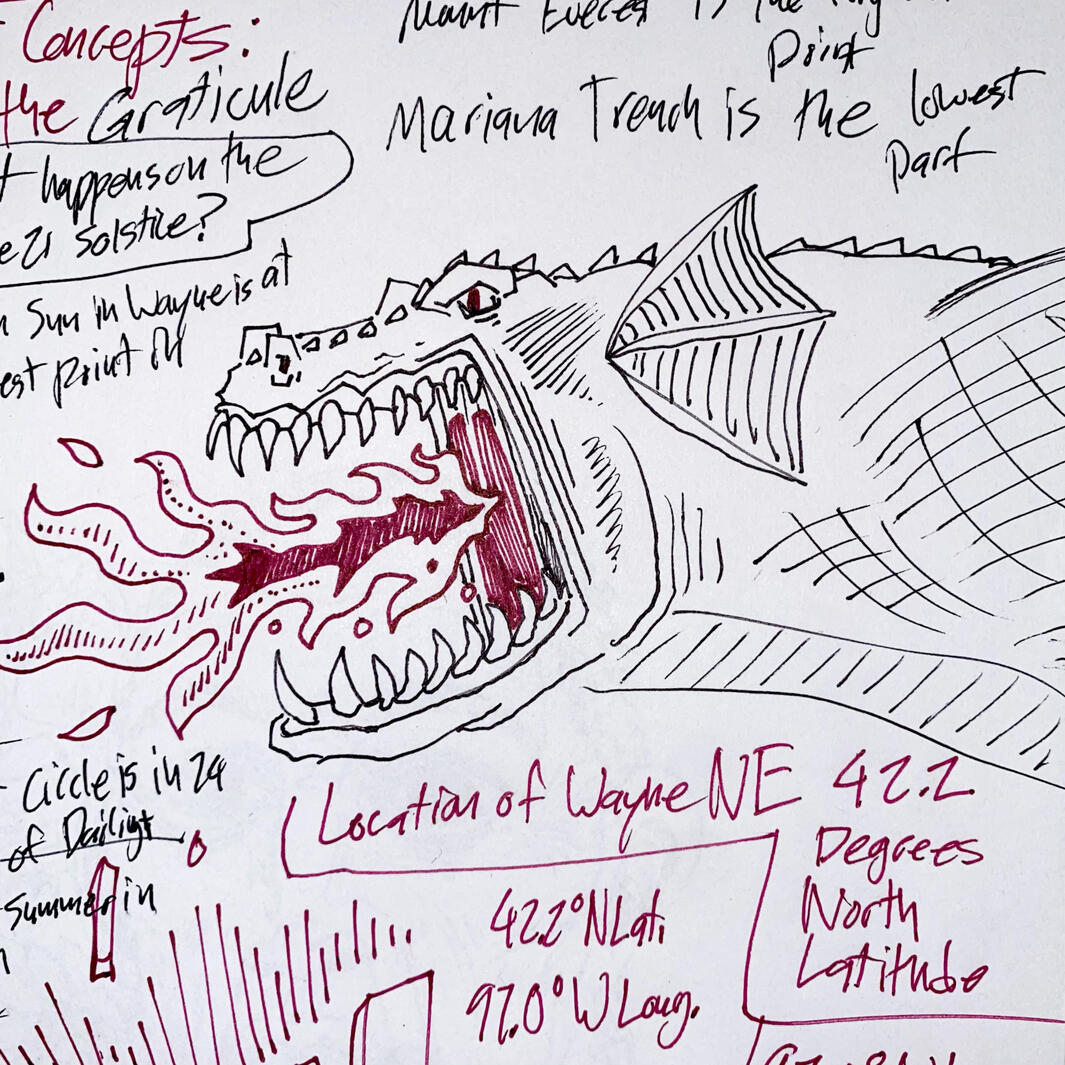 Concepts:
the Graticule
happens on the
21 Solstice?
Sun in Wayne is at
est point of
Mount Everest is the
Point
Mariana Trench is the lowest
part
Circle is in 24
of Dailigt
Summer in
Location of Wayne NE 42.2
Degrees
North
Latitude
42.2° N Lat.
97.0° W Long.